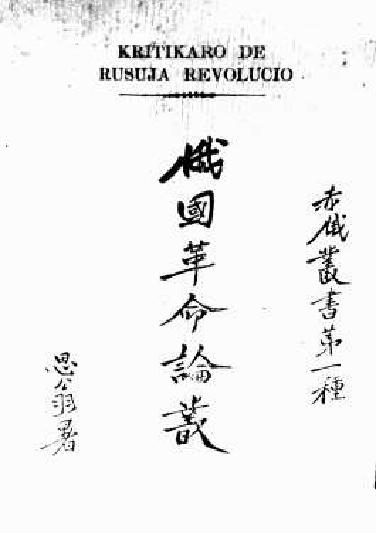 KRITIKARO DE
RUSUJA REVOLUCIO
赤俄叢書第一種
俄國革命論叢
思翁署